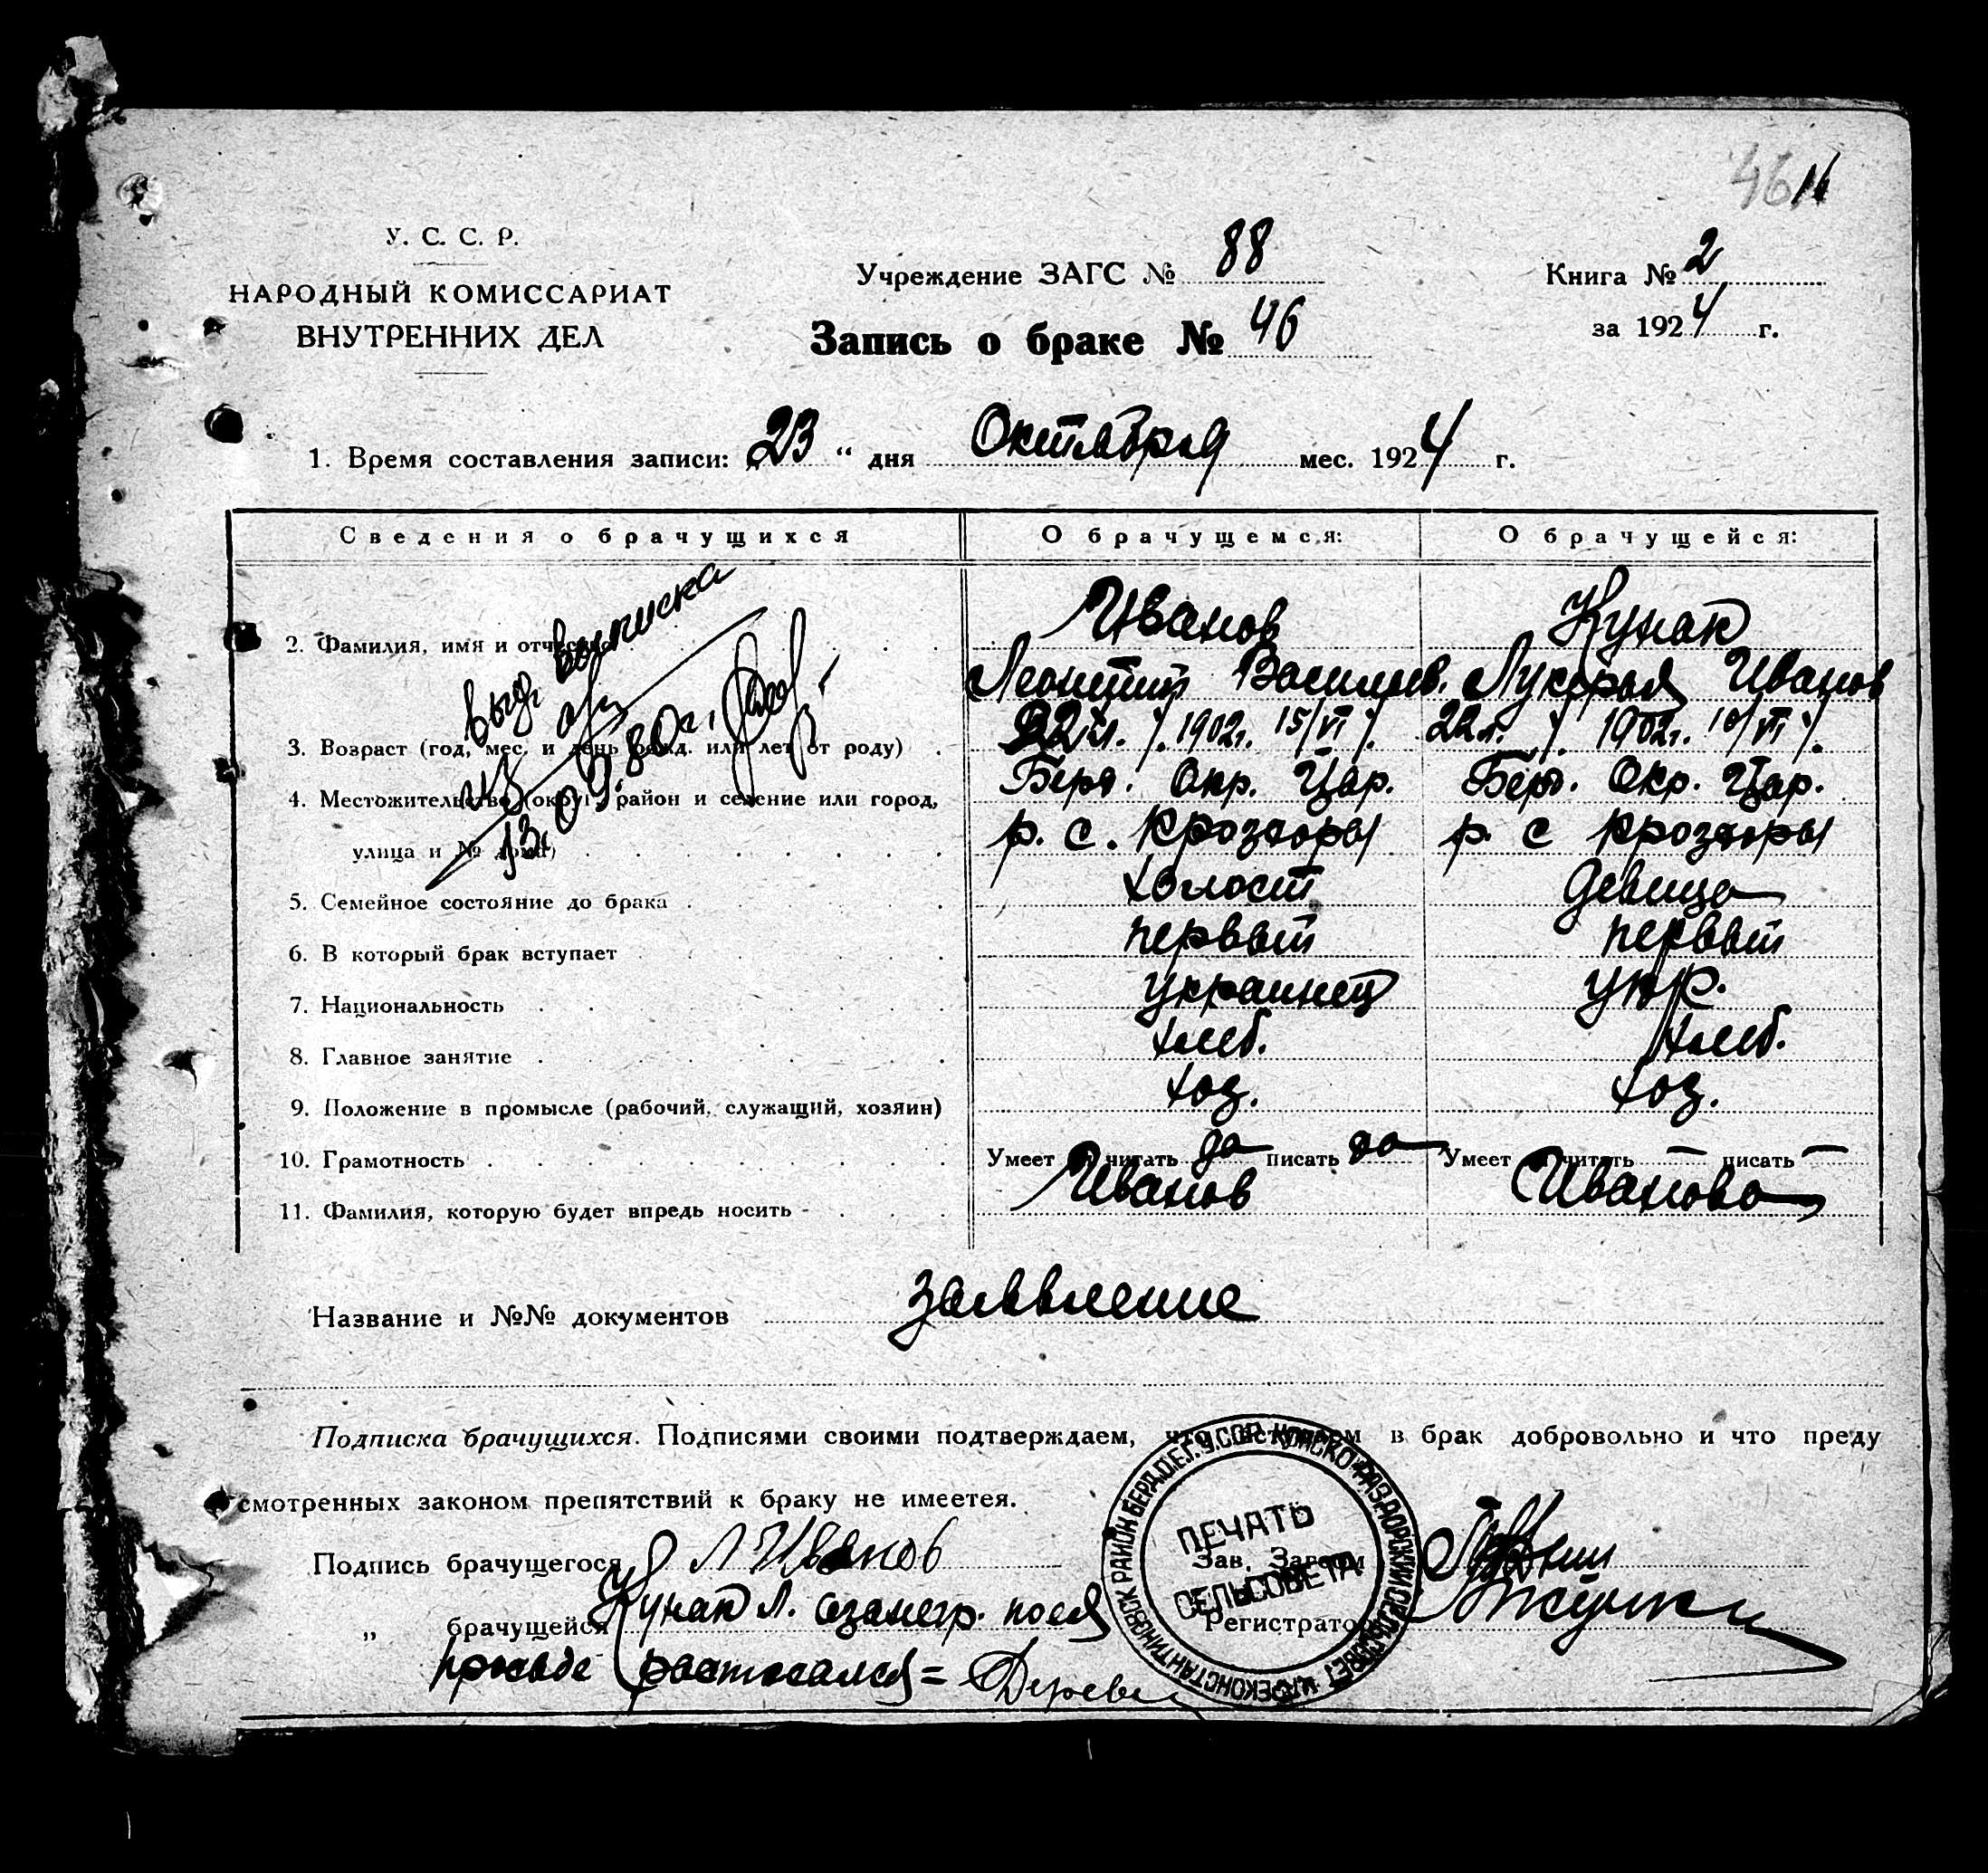 46 11
У. С. С. Р.
НАРОДНЫЙ КОМИССАРИАТ
ВНУТРЕННИХ ДЕЛ
Учреждение ЗАГС № 88
Книга № 2
Запись о браке № 46
за 1924 г.
1. Время составления записи: 23 “ дня Октября мес. 1924 г.
Сведения о брачущихся О брачущемся: О брачущейся:
Выд. выписка
13.09.80г.
2. Фамилия, имя и отчество Иванов Кунак
Леонтий Васильев. Лукерья Иванов
3. Возраст (год, мес. и день рожд. или лет от роду) 22 л. /. 1902г. 15/VI /. 22 л. /. 1902г. 10/VI /.
4. Местожительство (округ, район и селение или город, Берд. Окр. Цар. Берд. Окр. Цар.
улица и № дома) р. с. Крозторы р. с Крозторы
5. Семейное состояние до брака холост девица
6. В который брак вступает первый первый
7. Национальность украинец укр.
8. Главное занятие хлеб. хлеб.
9. Положение в промысле (рабочий, служащий, хозяин) хоз. хоз.
10. Грамотность Умеет читать да писать да Умеет читать — писать —
11. Фамилия, которую будет впредь носить - Иванов Иванова
Название и №№ документов заявление
Подписка брачущихся. Подписями своими подтверждаем, что вступаем в брак добровольно и что преду
смотренных законом препятствий к браку не имеется.
Подпись брачущегося Л Иванов Зав. Загсом
„ брачущейся Кунак Л. Регистратор
ПЕЧАТЬ
СЕЛЬСОВЕТА